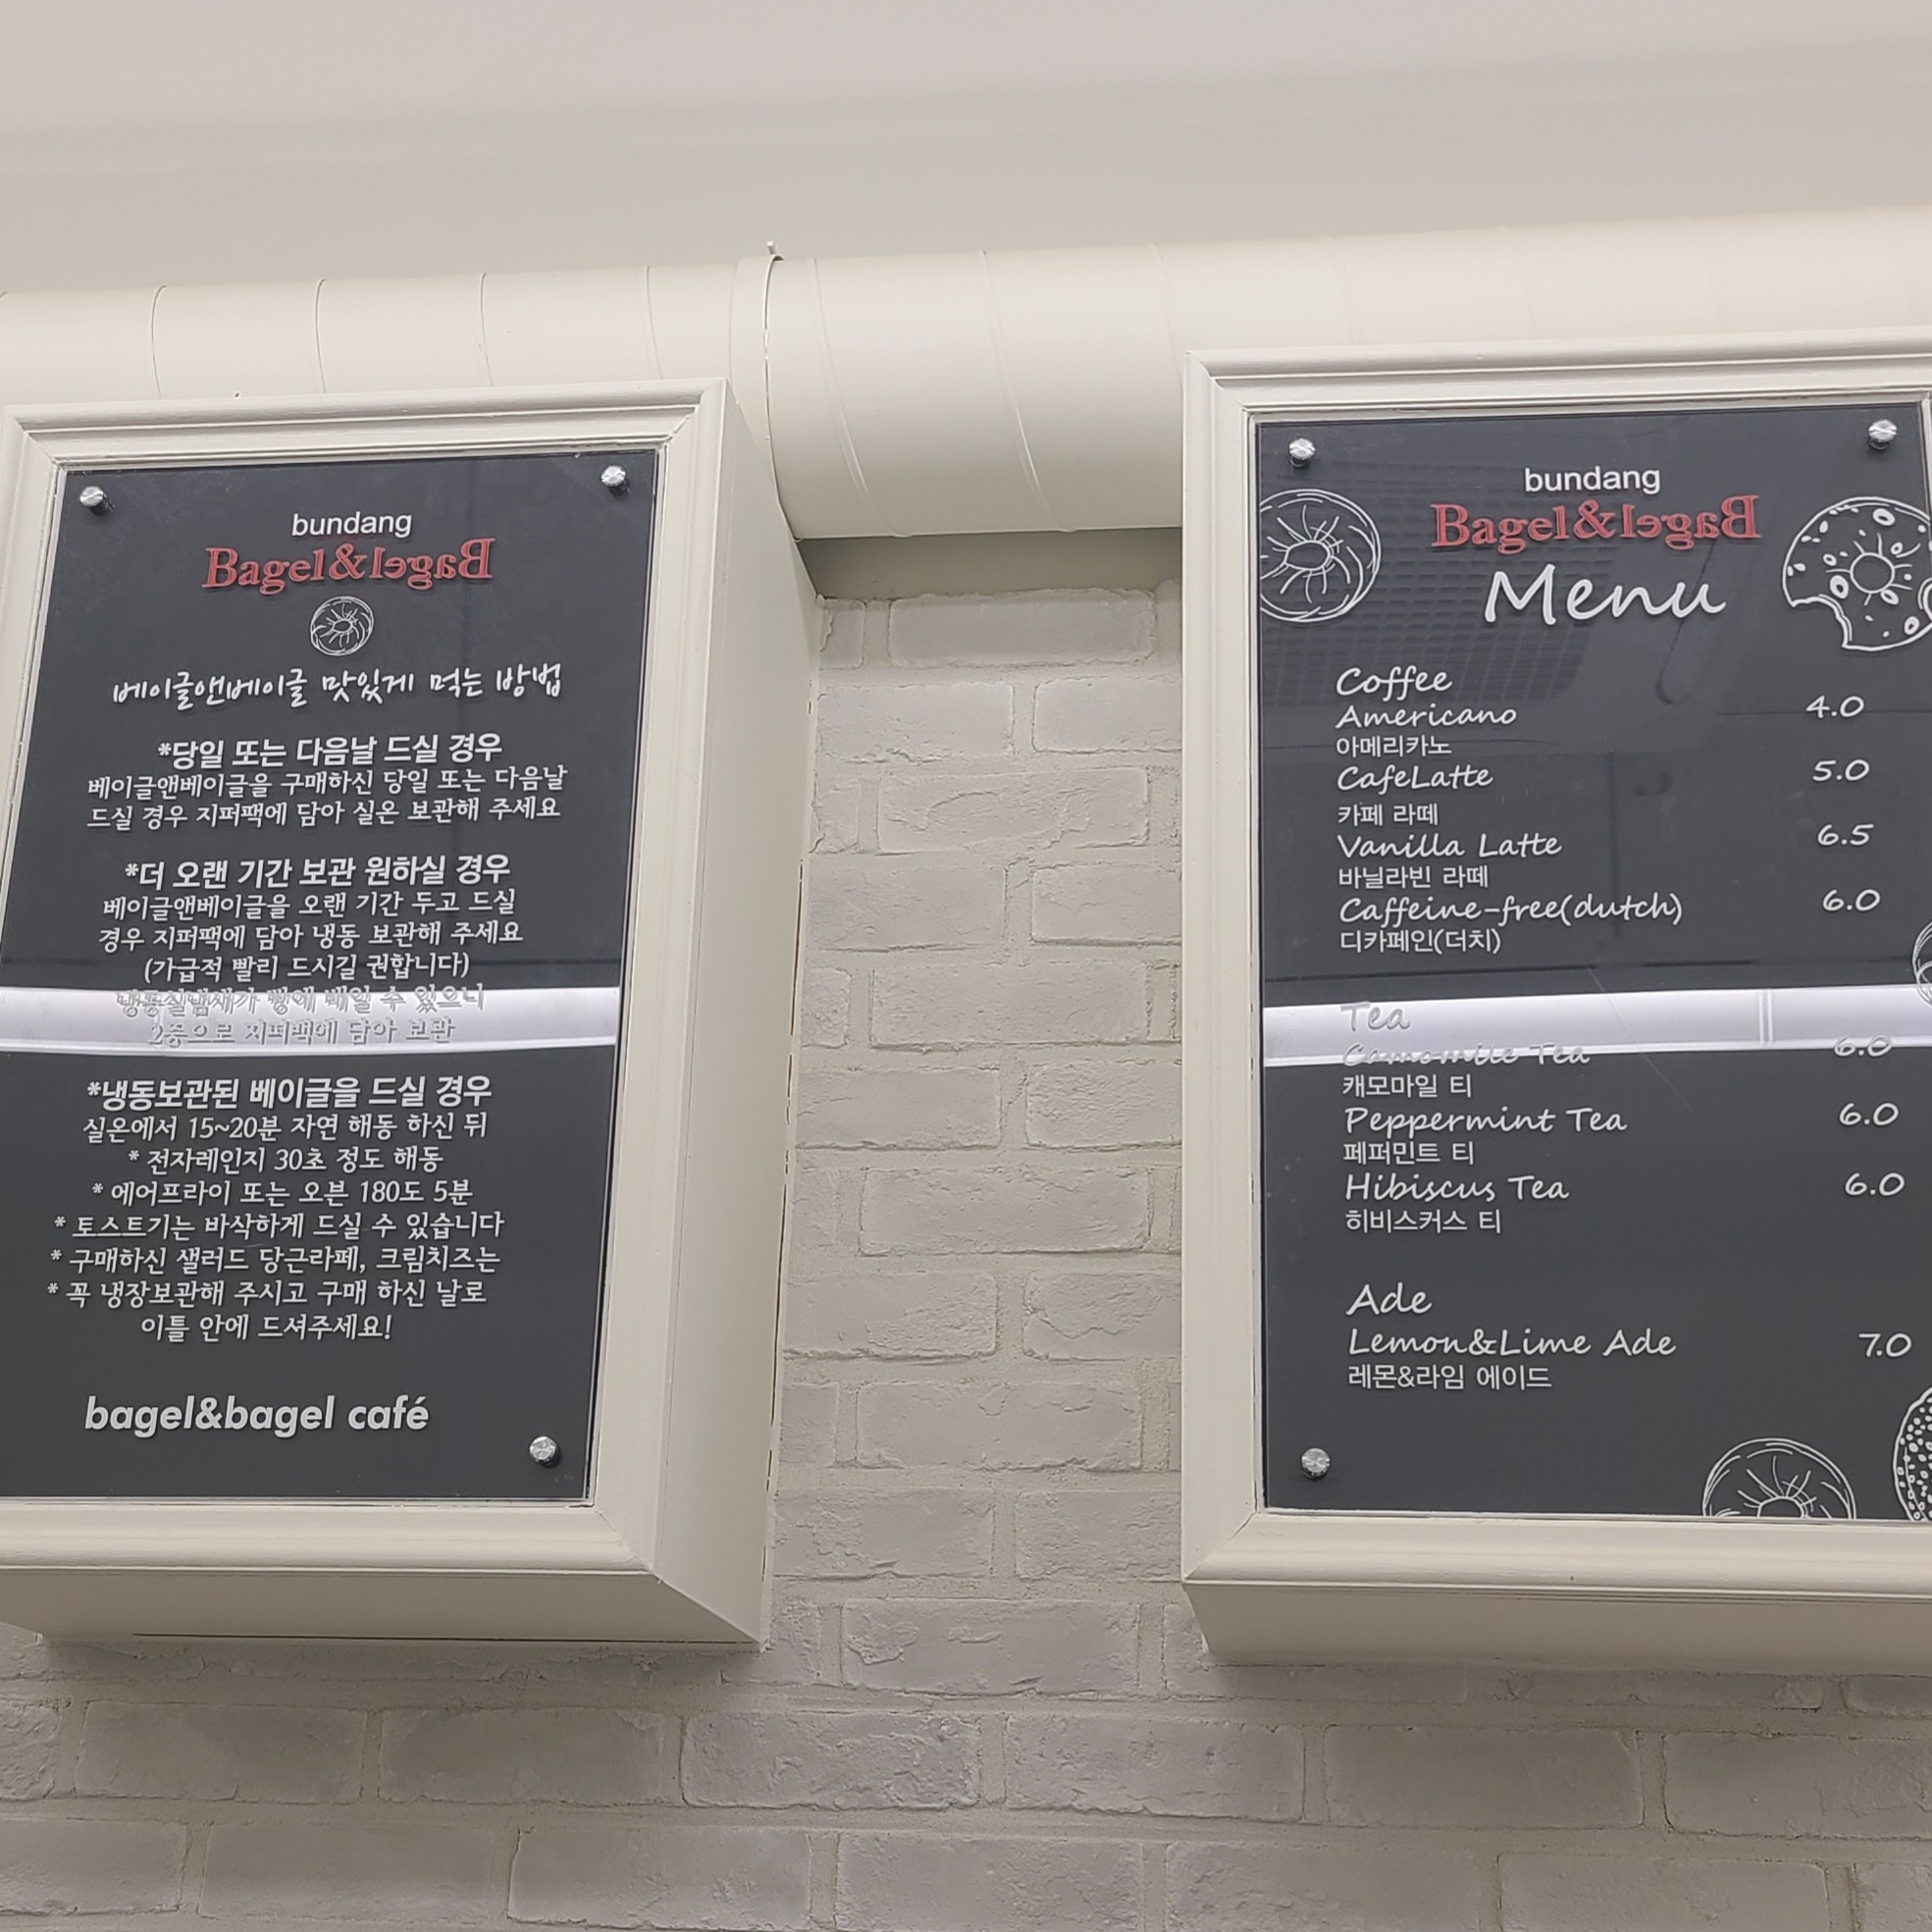 bundang
Bagel&Bagel
베이글앤베이글 맛있게 먹는 방법
*당일 또는 다음날 드실 경우
베이글앤베이글을 구매하신 당일 또는 다음날
드실 경우 지퍼팩에 담아 실온 보관해 주세요
*더 오랜 기간 보관 원하실 경우
베이글앤베이글을 오랜 기간 두고 드실
경우 지퍼팩에 담아 냉동 보관해 주세요
(가급적 빨리 드시길 권합니다)
냉동실냄새가 빵에 배일 수 있으니
2중으로 지퍼팩에 담아 보관
*냉동보관된 베이글을 드실 경우
실온에서 15~20분 자연 해동 하신 뒤
* 전자레인지 30초 정도 해동
* 에어프라이 또는 오븐 180도 5분
* 토스트기는 바삭하게 드실 수 있습니다
* 구매하신 샐러드 당근라페, 크림치즈는
* 꼭 냉장보관해 주시고 구매 하신 날로
이틀 안에 드셔주세요!
bagel&bagel café
bundang
Bagel&Bagel
Menu
Coffee
Americano 4.0
아메리카노
CafeLatte 5.0
카페 라떼
Vanilla Latte 6.5
바닐라빈 라떼
Caffeine-free(dutch) 6.0
디카페인(더치)
Tea
Camomile Tea 6.0
캐모마일 티
Peppermint Tea 6.0
페퍼민트 티
Hibiscus Tea 6.0
히비스커스 티
Ade
Lemon&Lime Ade 7.0
레몬&라임 에이드